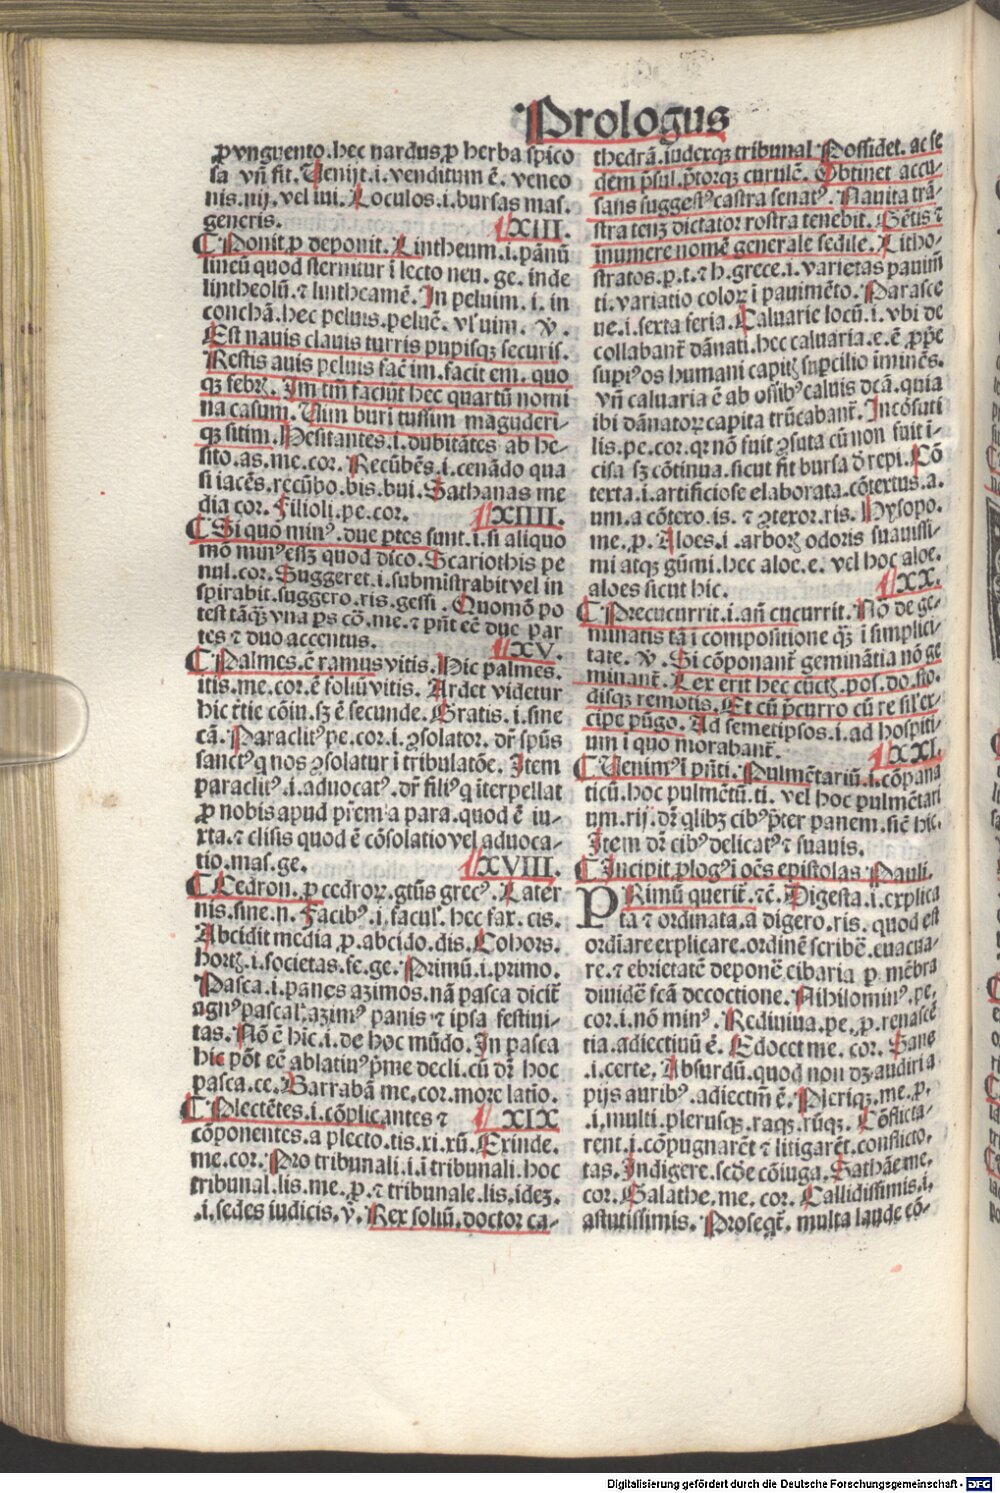 Prologus
ꝓ vnguento.hec nardus.ꝓ herba spico
sa vñ fit. Uenijt.i.venditum ē. veneo
nis.nij.vel iui. Loculos.i.bursas mas.
generis. XIII.
Ponit.ꝓ deponit. Lintheum.i.pānū
lineū quod sternitur ī lecto neu.ge.inde
lintheolū.⁊ linthcamē.In peluim.i.in
conchā.hec peluis.peluē.vľ uim. V̇.
Est nauis clauis turris pupisqꝫ securis.
Restis auis peluis facē im.facit em.quo
qꝫ febrꝫ. Im tm̄ faciūt hec quartū nomi
na casum. Uim buri tussim maguderi-
qꝫ sitim. Hesitantes.i.dubitātes ab he-
sito.as.me.cor. Recūbēs.i.cenādo qua
si iacēs.recūbo.bis.bui. Sathanas me
dia cor. Filioli.pe.cor. XIIII.
Si quo minꝰ.due ptes sunt.i.si aliquo
mō minꝰ essꝫ quod dico. Scariothis pe
nul.cor. Suggeret.i.submistrabit vel in
spirabit.suggero.ris.gessi. Quomō po
test tāqꝫ vna ps cō.me.⁊ pn̄t eē due par
tes ⁊ duo accentus. XV.
Palmes.ē ramus vitis. Hic palmes.
itis.me.cor.ē foliū vitis. Ardet videtur
hic t̄tie cōiu.sꝫ ē secunde. Gratis.i.sine
cā. Paraclitꝰ pe.cor.i.ꝯsolator. dr̄ spūs
sanctꝰ q nos ꝯsolatur ī tribulatōe. Item
paraclitꝰ.i.aduocatꝰ.dr̄ filiꝰ q īterpellat
ꝓ nobis apud pr̄em a para.quod ē iu-
xta.⁊ clisis quod ē cōsolatio vel aduoca-
tio.mas.ge. XVIII.
Cedron.ꝓ cedroꝝ.gt̄us grecꝰ. Later
nis.sine.n. Facibꝰ.i.faculꝰ.hec fax.cis.
Abcidit media ꝓ.abcido.dis. Cohors.
hortꝫ.i.societas.fe.ge. Primū.i.primo.
Pasca.i.panes azimos.nā pasca dicit̄
agnꝰ pascal'.azimꝰ panis ⁊ ipsa festiui-
tas. Nō ē hic.i.de hoc mūdo. In pasca
hic pōt eē ablatiuꝰ p̄me decli.cū dr̄ hoc
pasca.ce. Barrabā me.cor.more latio.
Plectētes.i.cōplicantes ⁊ XIX
cōponentes.a plecto.tis.xi.xū. Exinde.
me.cor. Pro tribunali.i.ī tribunali.hoc
tribunal.lis.me.ꝓ.⁊ tribunale.lis.ideꝫ.
.i.sedes iudicis.v̇. Rex soliū.doctor ca-
thedrā.iudexqꝫ tribunal Possidet. ac se
dem p̄sul.p̄torqꝫ curulē. Obtinet accu-
sans suggestꝰ castra senatꝰ. Nauita trā-
stra tenꝫ dictator rostra tenebit. Gētis ⁊
inumere nomē generale sedile. Litho-
stratos.ꝓ.t.⁊ h.grece.i.varietas pauim̄
ti.variatio coloꝝ ī pauimēto. Parasce
ue.i.sexta feria. Caluarie locū.i.vbi de
collabant̄ dānati.hec caluaria.e.ē ꝓpe
supiꝰ os humani capitꝫ supcilio īminēs.
vñ caluaria ē ab ossibꝰ caluis dcā.quia
ibi dānatoꝝ capita trūcabant̄. Incōsuti
lis.pe.cor.qꝛ nō fuit ꝯsuta cū non fuit ī-
cisa sꝫ cōtinua.sicut fit bursa d̄ repi. Cō
texta.i.artificiose elaborata.cōtextus.a.
um.a cōtero.is.⁊ ꝯtexor.ris. Hysopo.
me.ꝓ. Aloes.i.arborꝫ odoris suauissi-
mi atqꝫ gūmi.hec aloe.e. vel hoc aloe.
aloes sicut hic. XX.
Precucurrit.i.añ cucurrit. Nō de ge-
minatis tā ī compositione qꝫ ī simplici-
tate. V̇. Si cōponant̄ geminātia nō ge
minant̄. Lex erit hec cūctꝫ.pos.do.sto.
disqꝫ remotis. Et cū p̄curro cū re sil'ex-
cipe pūgo. Ad semetipsos.i.ad hospiti-
um ī quo morabant̄. XXI.
Uenimꝰ ī pn̄ti. Pulmētariū.i.cōpana
ticū.hoc pulmētū.ti. vel hoc pulmētari
um.rij.dr̄ qlibꝫ cibꝰ p̄ter panem.sic̄ hic.
Item dr̄ cibꝰ delicatꝰ ⁊ suauis.
Incipit ꝓlogꝰ ī oēs epistolas Pauli.
PRimū querit̄.⁊ē. Digesta.i.explica
ta ⁊ ordinata.a digero.ris.quod est
ordīare explicare.ordinē scribē.euacua-
re.⁊ ebrietatē deponē.cibaria ꝓ mēbra
diuidē fcā decoctione. Nihilominꝰ.pe.
cor.i.nō minꝰ. Rediuiua.pe.ꝓ.renascē
tia.adiectiuū ē. Edocet me. cor. Sane
.i.certe. Absurdū.quod non dꝫ audiri a
pijs auribꝰ.adiectm̄ ē. Pleriqꝫ.me.ꝓ.
.i.multi.plerusqꝫ.raqꝫ.rūqꝫ. Cōflicta-
rent.i.cōpugnarēt ⁊ litigarēt.conflicto.
tas. Indigere.scd̄e cōiuga. Sathāe me.
cor. Galathe.me. cor. Callidissimis.i.
astutissimis. Proseqt̄. multa laude cō-
Digitalisierung gefördert durch die Deutsche Forschungsgemeinschaft - DFG